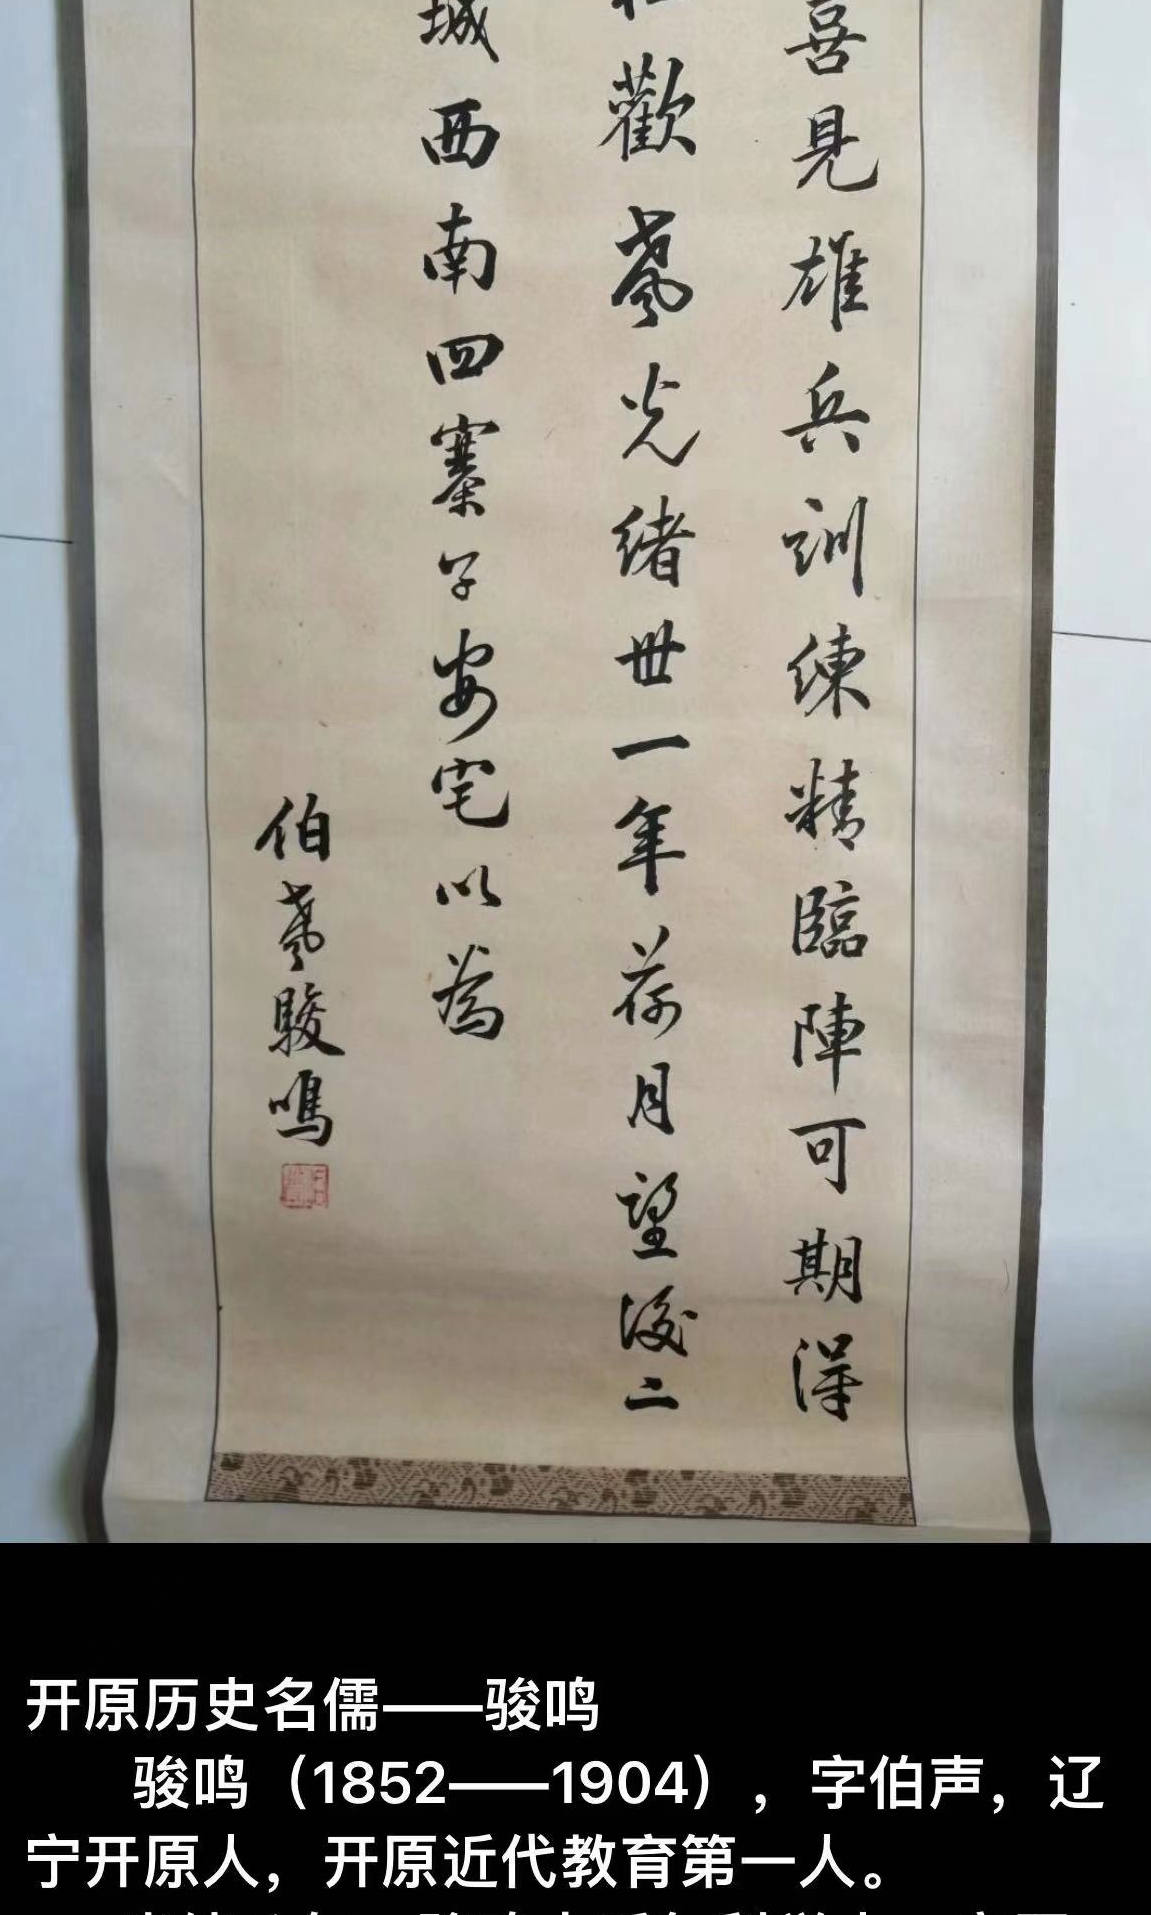 喜見雄兵訓練精臨陣可期得
歡聲光緒丗一年荷月望後二
城西南四寨子安宅以為
伯聲駿鳴
开原历史名儒——骏鸣
骏鸣（1852——1904），字伯声，辽
宁开原人，开原近代教育第一人。